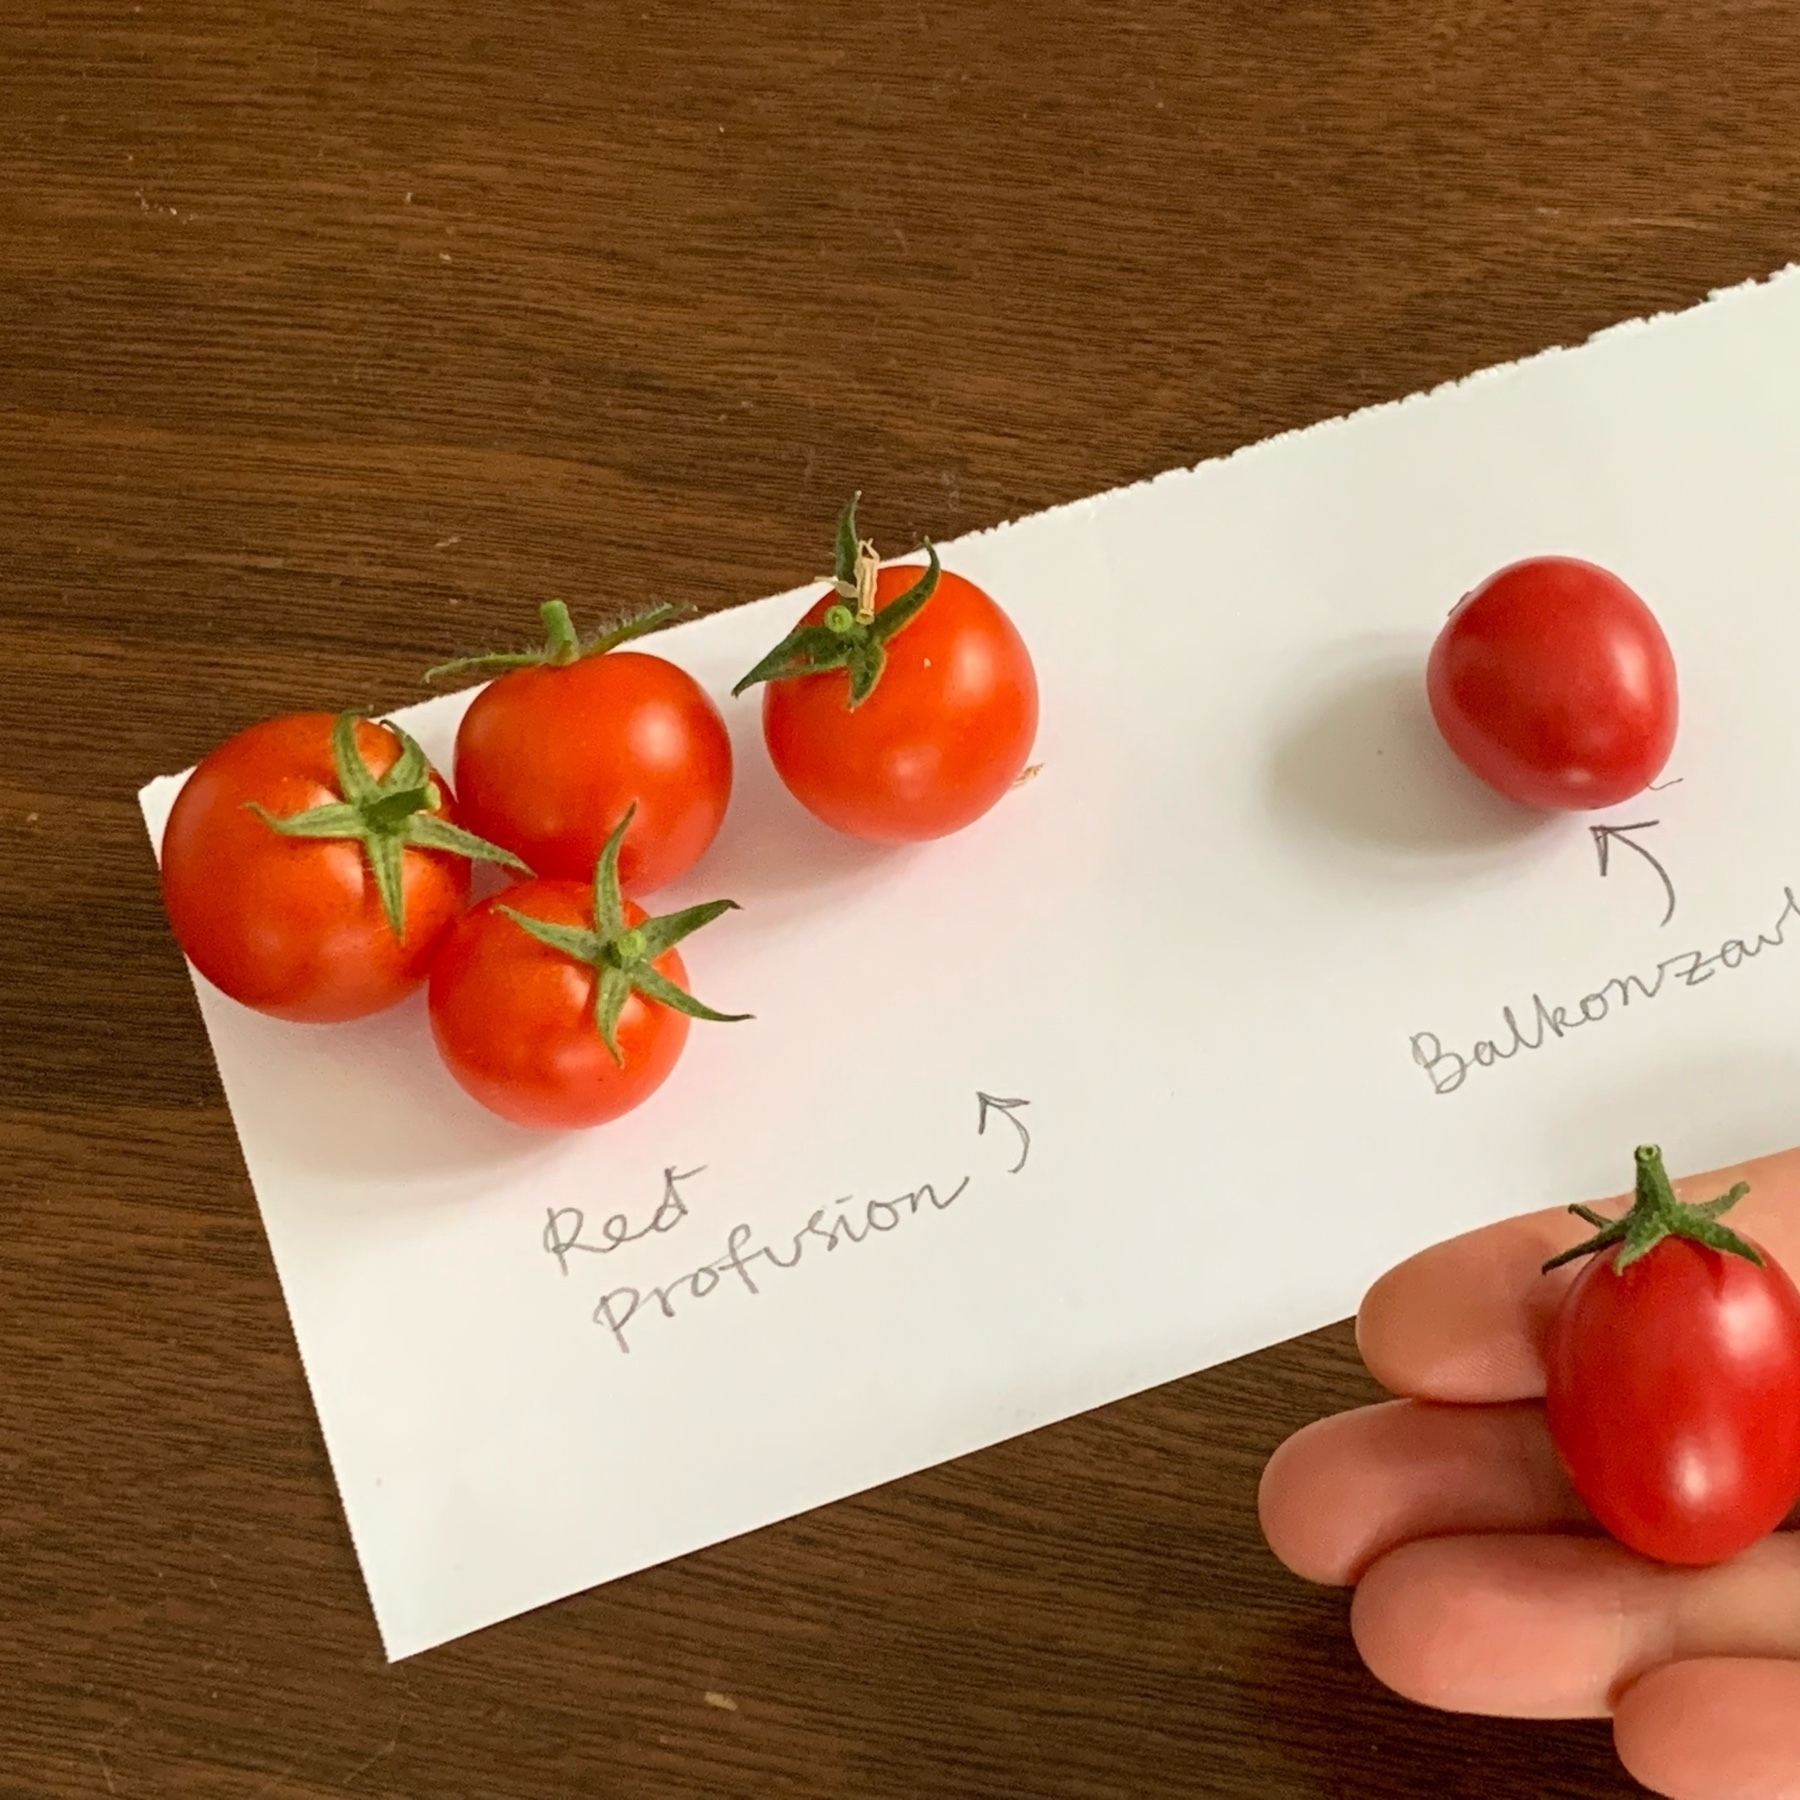 Red
Profusion
Balkonzau